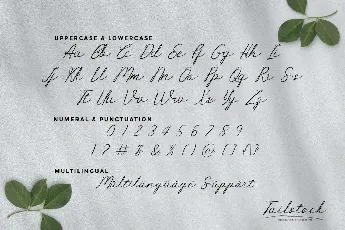 UPPERCASE & LOWERCASE
Aa Bb Cc Dd Ee Ff Gg Hh Ii
Jj Kk Ll Mm Nn Oo Pp Qq Rr Ss
Tt Uu Vv Ww Xx Yy Zz
NUMERAL & PUNCTUATION
0 1 2 3 4 5 6 7 8 9
! ? # $ & % ( ) @ [ ] { }
MULTILINGUAL
Multilanguage Support
Tailstock